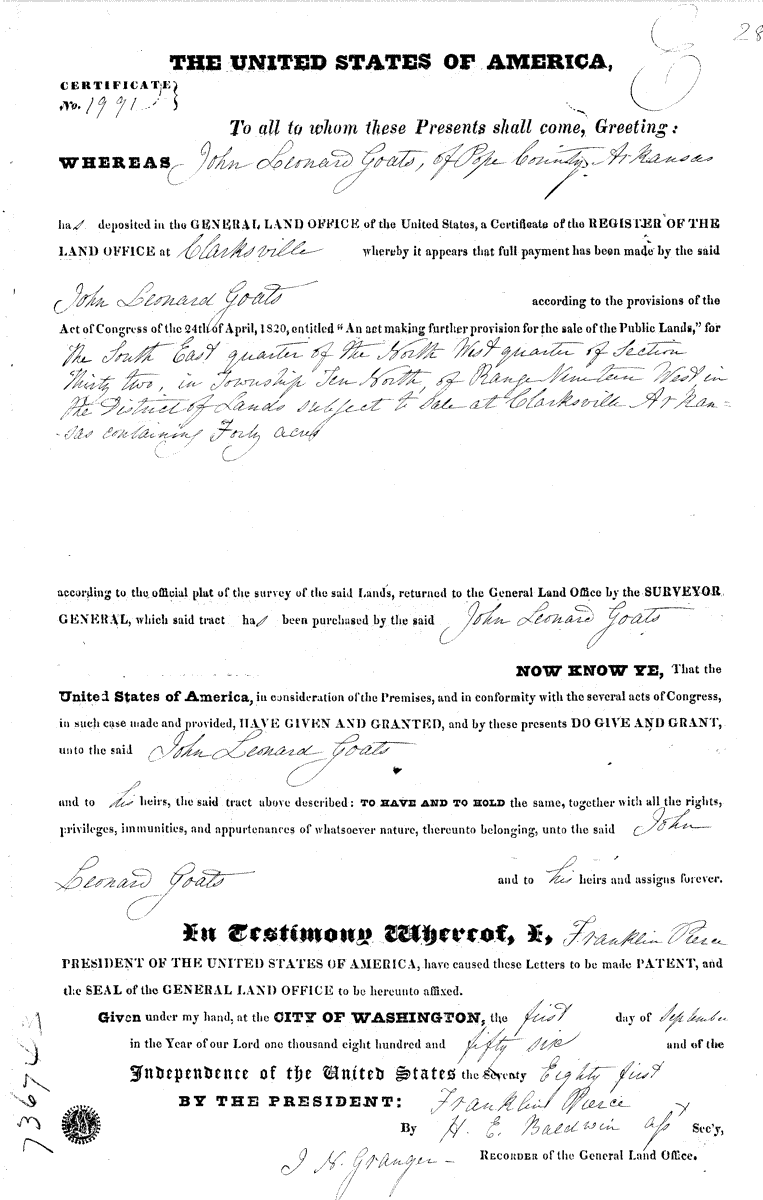 28
THE UNITED STATES OF AMERICA,
CERTIFICATE
No. 1991
To all to whom these Presents shall come, Greeting:
WHEREAS John Leonard Goats, of Pope County, Arkansas
has deposited in the GENERAL LAND OFFICE of the United States, a Certificate of the REGISTER OF THE
LAND OFFICE at Clarksville whereby it appears that full payment has been made by the said
John Leonard Goats according to the provisions of the
Act of Congress of the 24th of April, 1820, entitled "An act making further provision for the sale of the Public Lands," for
the South East quarter of the North West quarter of Section
Thirty two, in Township Ten North, of Range Nineteen West in
the District of Lands subject to Sale at Clarksville Arkan-
-sas containing Forty acres
according to the official plat of the survey of the said Lands, returned to the General Land Office by the SURVEYOR
GENERAL, which said tract has been purchased by the said John Leonard Goats
NOW KNOW YE, That the
United States of America, in consideration of the Premises, and in conformity with the several acts of Congress,
in such case made and provided, HAVE GIVEN AND GRANTED, and by these presents DO GIVE AND GRANT,
unto the said John Leonard Goats
and to his heirs, the said tract above described: TO HAVE AND TO HOLD the same, together with all the rights,
privileges, immunities, and appurtenances of whatsoever nature, thereunto belonging, unto the said John
Leonard Goats and to his heirs and assigns forever.
In Testimony Whereof, I, Franklin Pierce
PRESIDENT OF THE UNITED STATES OF AMERICA, have caused these Letters to be made PATENT, and
the SEAL of the GENERAL LAND OFFICE to be hereunto affixed.
Given under my hand, at the CITY OF WASHINGTON, the first day of September
in the Year of our Lord one thousand eight hundred and fifty six and of the
Independence of the United States the seventy Eighty first
BY THE PRESIDENT: Franklin Pierce
By H. E. Baldwin asst Sec'y,
J N. Granger - RECORDER of the General Land Office.